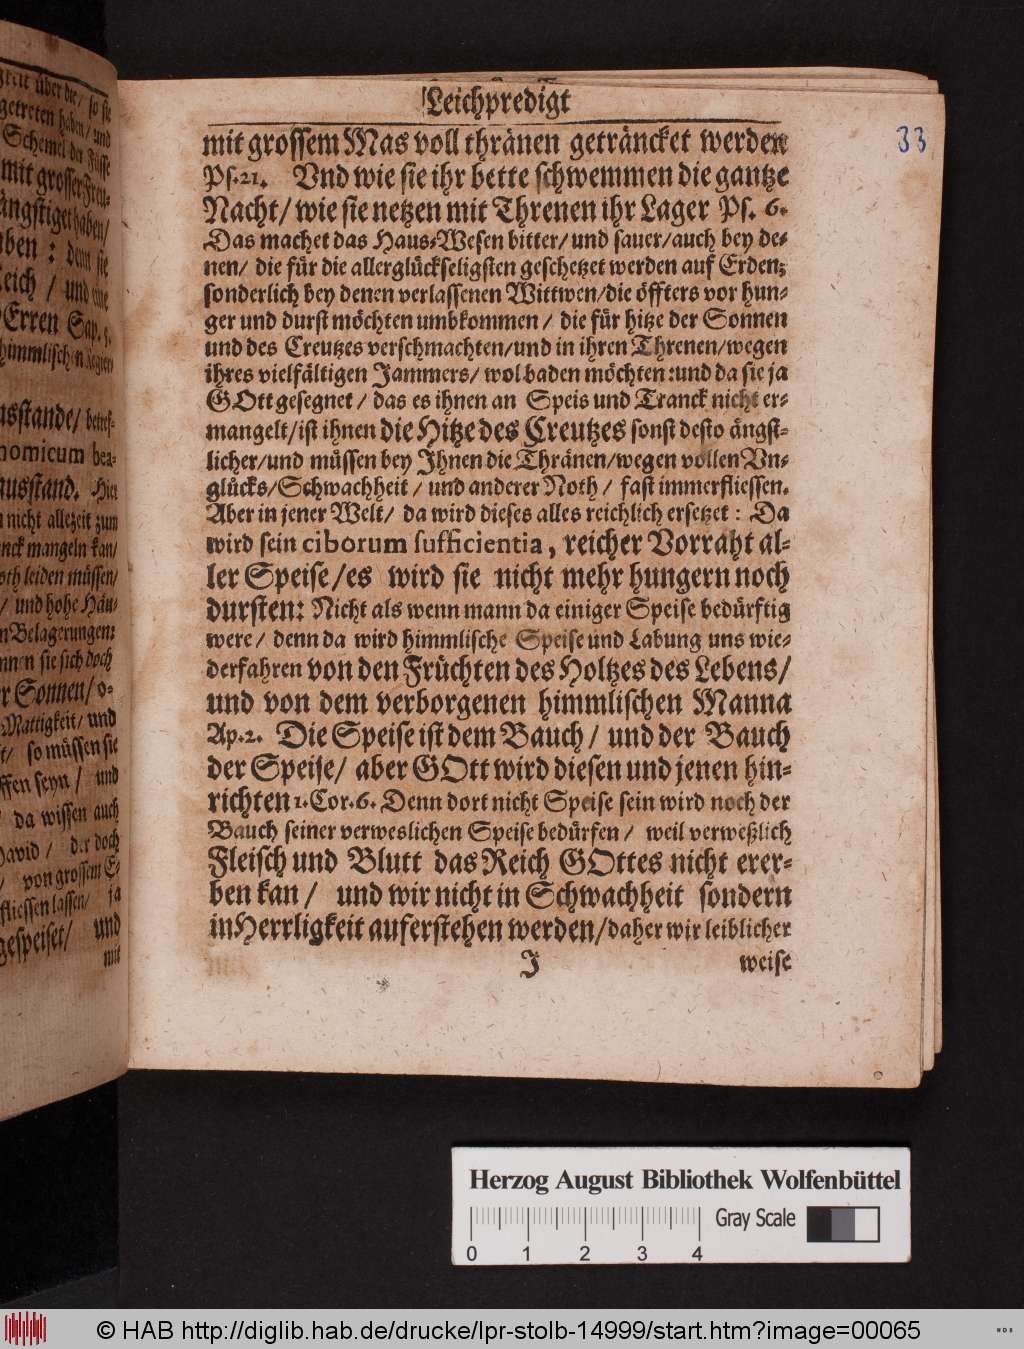 Leichpredigt
33
mit grossem Mas voll thränen geträncket werden
Ps. 21. Vnd wie sie ihr bette schwemmen die gantze
Nacht/ wie sie netzen mit Threnen ihr Lager Ps. 6.
Das machet das Haus-Wesen bitter/ und sauer/ auch bey de-
nen/ die für die allerglückseligsten geschetzet werden auf Erden;
sonderlich bey denen verlassenen Wittwen/ die öffters vor hun-
ger und durst möchten umbkommen/ die für hitze der Sonnen
und des Creutzes verschmachten/ und in ihren Threnen/ wegen
ihres vielfältigen Jammers/ wol baden möchten: und da sie ja
GOtt gesegnet/ das es ihnen an Speis und Tranck nicht er-
mangelt/ ist ihnen die Hitze des Creutzes sonst desto ängst-
licher/ und müssen bey Jhnen die Thränen/ wegen vollen Vn-
glücks/ Schwachheit/ und anderer Noth/ fast immerfliessen.
Aber in jener Welt/ da wird dieses alles reichlich ersetzet: Da
wird sein ciborum sufficientia, reicher Vorraht al-
ler Speise/ es wird sie nicht mehr hungern noch
dursten: Nicht als wenn mann da einiger Speise bedürftig
were/ denn da wird himmlische Speise und Labung uns wie-
derfahren von den Früchten des Holtzes des Lebens/
und von dem verborgenen himmlischen Manna
Ap. 2. Die Speise ist dem Bauch/ und der Bauch
der Speise/ aber GOtt wird diesen und jenen hin-
richten 1. Cor. 6. Denn dort nicht Speise sein wird noch der
Bauch seiner verweslichen Speise bedürfen/ weil verweßlich
Fleisch und Blutt das Reich GOttes nicht erer-
ben kan/ und wir nicht in Schwachheit sondern
in Herrligkeit auferstehen werden/ daher wir leiblicher
J weise
über die/ so sie
getreten haben/ und
Schemel der Füsse
mit grosser Freu-
ängstiget haben/
ben: denn sie
eich/ und eine
Erren Sap. 5.
himmlischen
usstande/ betref-
nomicum bea-
ausstand. Hier
nicht allezeit zum
nck mangeln kan/
oth leiden müssen/
/ und hohe Häu-
n Belagerungen:
nnen sie sich doch
r Sonnen/ o-
Mattigkeit/ und
t/ so müssen sie
ffen seyn/ und
da wissen auch
David/ der doch
/ von grossem E-
fliessen lassen/ ja
gespeiset/ und
mit
Herzog August Bibliothek Wolfenbüttel
Gray Scale
0 1 2 3 4
© HAB http://diglib.hab.de/drucke/lpr-stolb-14999/start.htm?image=00065